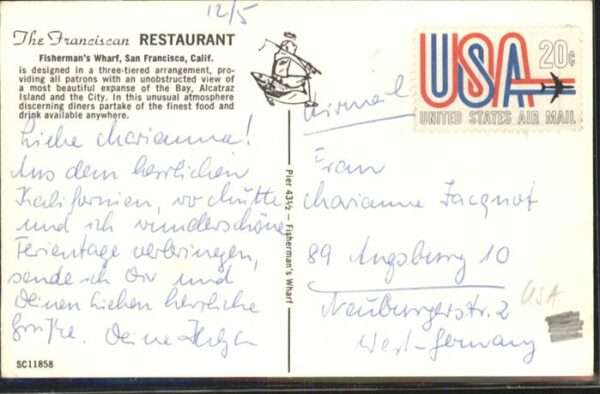 12/5
The Franciscan RESTAURANT
Fisherman's Wharf, San Francisco, Calif.
is designed in a three-tiered arrangement, pro-
viding all patrons with an unobstructed view of
a most beautiful expanse of the Bay, Alcatraz
Island and the City. In this unusual atmosphere
discerning diners partake of the finest food and
drink available anywhere.
Liebe Marianna!
Aus dem herrlichen
Kalifornien, wo Mutti
und ich wunderschöne
Ferientage verbringen,
sende ich Dir und
Deinen Lieben herzliche
Grüße. Deine
SC11858
Pier 43½ — Fisherman's Wharf
Airmail
USA 20c
UNITED STATES AIR MAIL
Frau
Marianne Jacquot
89 Augsburg 10
Neuburgerstr. 2
West-Germany
USA